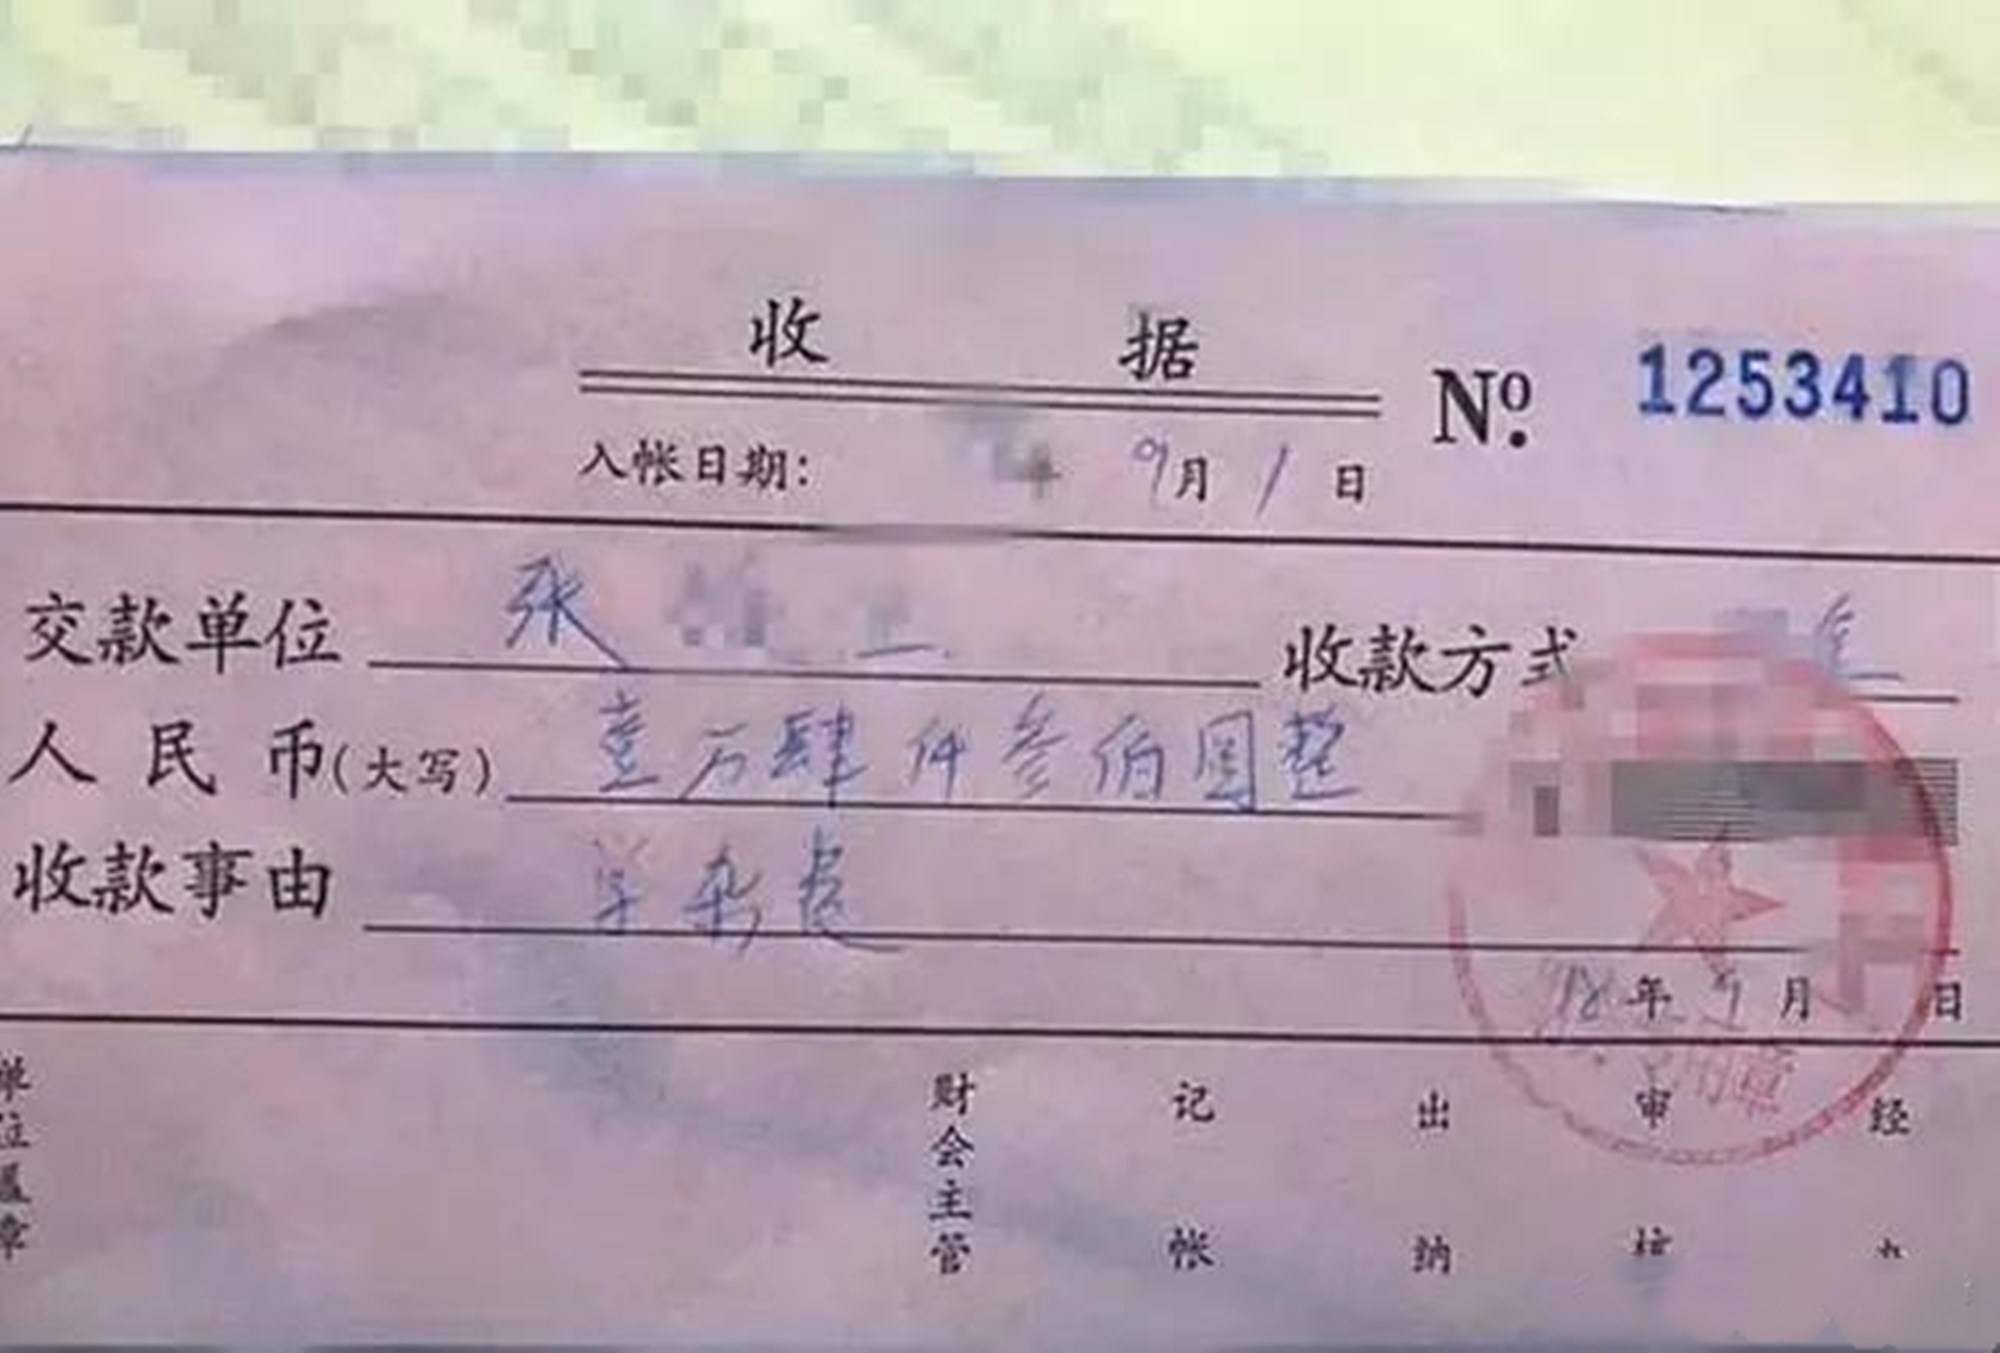 收 据
№ 1253410
入帐日期： 年 9月 1 日
交款单位 张 收款方式
人民币(大写) 壹万肆仟叁佰圆整
收款事由 学杂费
18年9月 日
用章
单位盖章 财会主管 记帐 出纳 审核 经